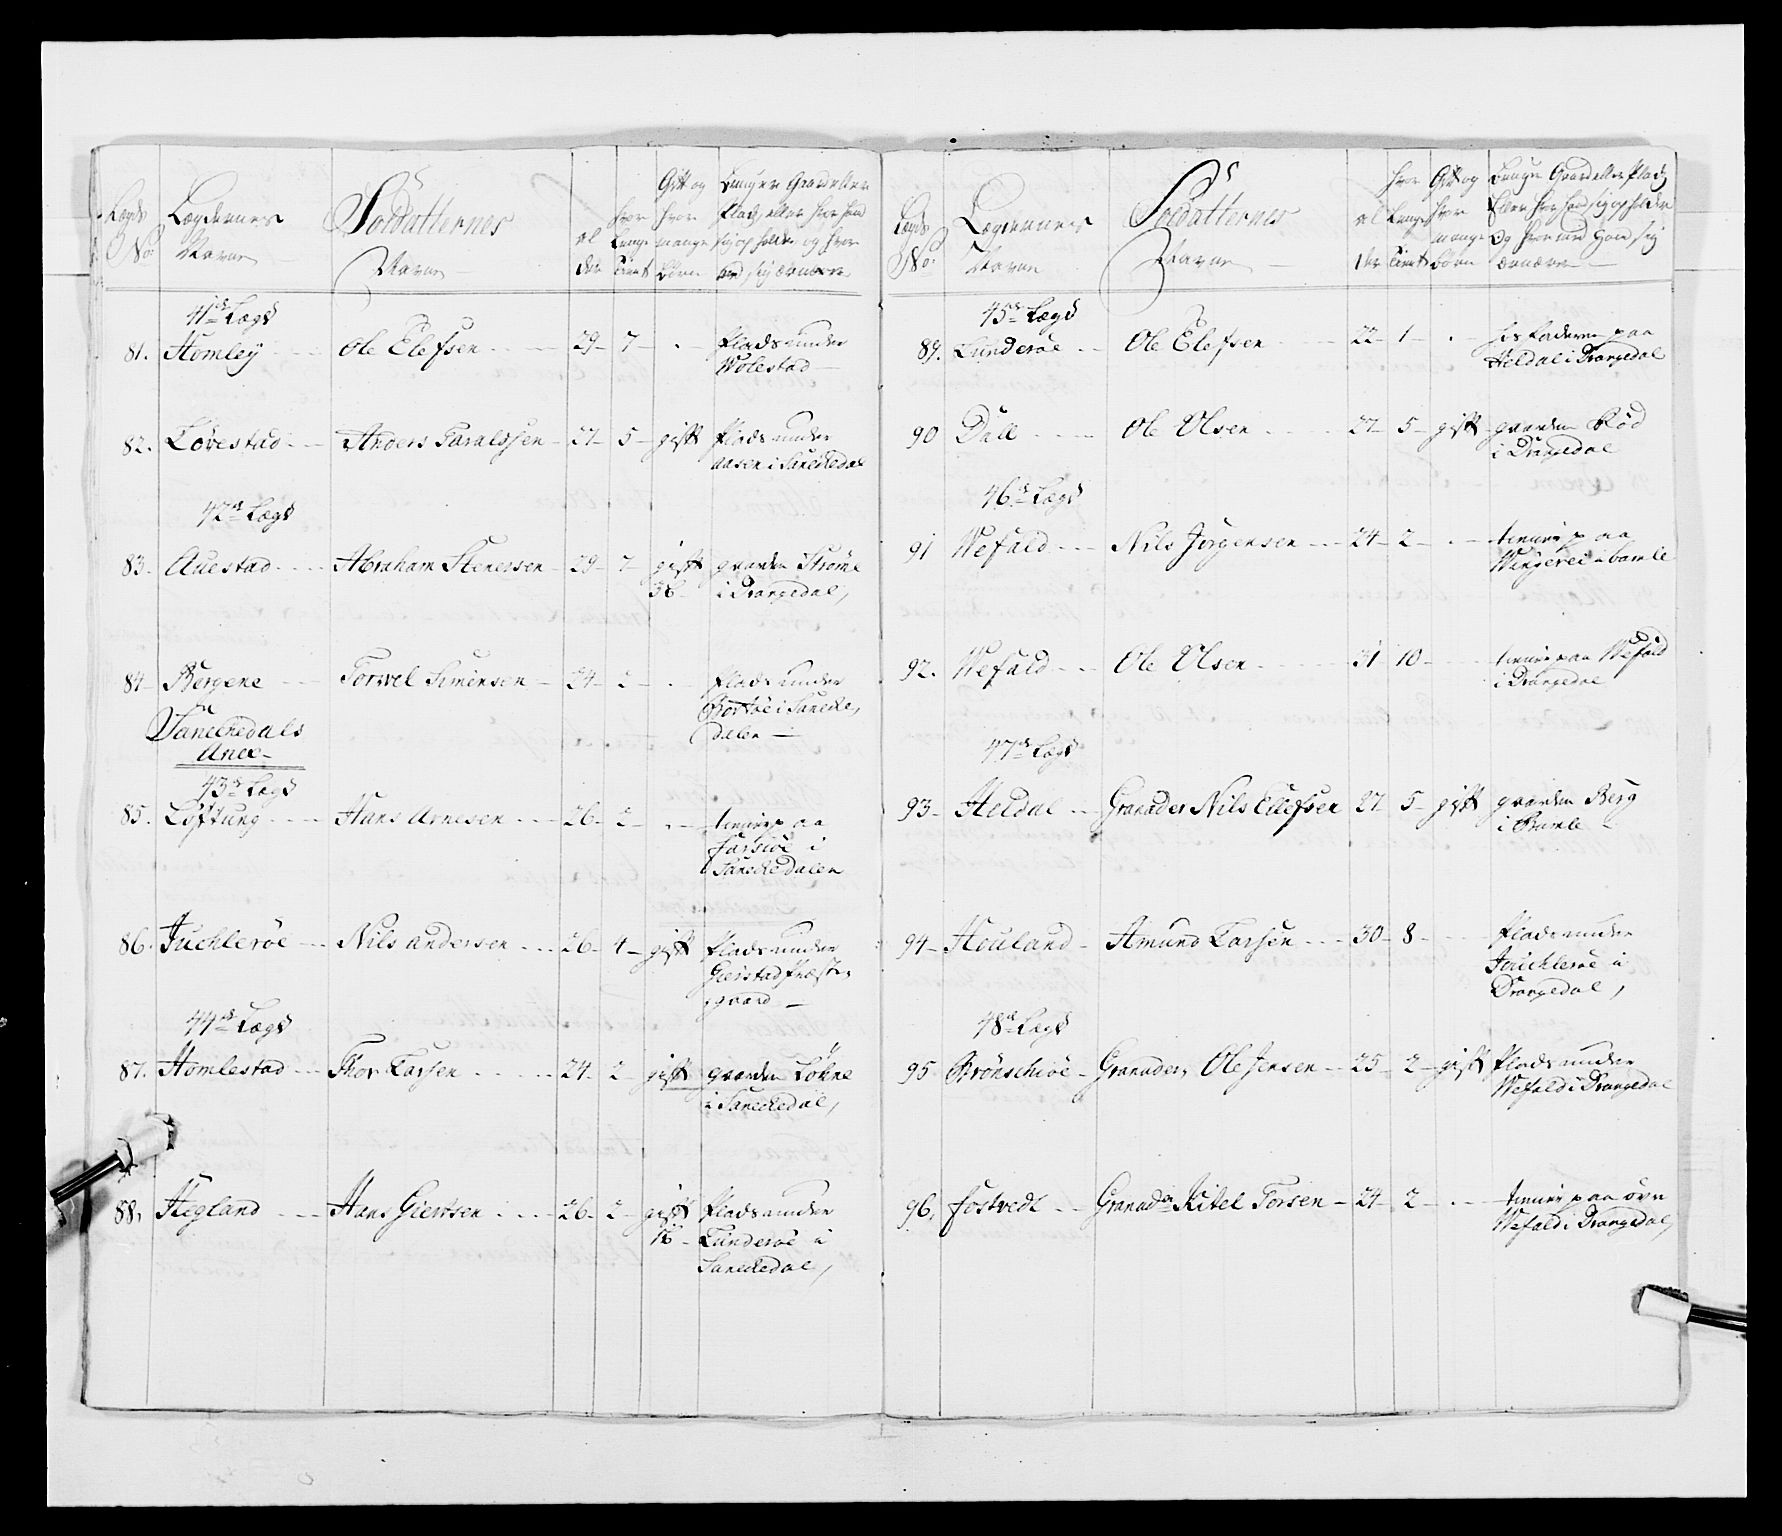 Lægds No: | Lægdernes Navne | Soldatternes Navne | al der | hvor Længe Tient | Gift og hvor mange Børn | Bruger Gaard eller Plads, eller hvor hand sig opholder og hvor ved sig ernærer
41de Lægd
81. Homley Ole Elefsen 29 7 - Plads under
Wolestad
82. Lövestad Anders Taralssen 27 5 gift Plads under
aasen i Sanckedal
42de Lægd
83. Auestad Abraham Stenersen 29 7 gift gaarden Strömme
3 B i Drangedal,
84 Bergene Torvel Simensen 24 2 - Plads under
i Sanckedalen
Sanckedals
Anex
43de Lægd
85. Löftung Hans Arnesen 26 2 - tienner paa
Farsiöe i
Sanckedalen
86. Juchleröe Nils andersen 26 4 gift Plads under
Gierstad Præste
gaard
44de Lægd
87. Homlestad Thor Larsen 24 2 gift gaarden Lökne
i Sanckedal,
88, Hegland Hans Giertsen 26 2 gift Plads under
1 B Lunderöe i
Sanckedal,
Lægds No: | Lægdernes Navne | Soldatternes Navne | al der | hvor Længe Tient | Gift og hvor mange Børn | Bruger Gaard eller Plads Eller hvor hand sig opholder Og hvor ved Hand sig ernærer
45de Lægd
89. Lunderöe Ole Elefsen 22 1 - hos Faderen paa
Heldal i Drangedal
90 Dall Ole Olsen 27 5 gift gaarden Röd
i Drangedal
46de Lægd
91 Wefald Nils Jörgensen 24 2 - tienner paa
Wingerei i bamle
92. Wefald Ole Olsen 31 10 tienner paa Wefald
i Drangedal
47de Lægd
93 Heldal Granader Nils Ellefsen 27 5 gift gaarden Berg
i Bamle
94 Houland Amund Larsen 30 8 Plads under
Juchleröe i
Drangedal,
48de Lægd
95 Brönschiöe Granader, Ole Jensen 25 2 gift Plads under
Wefald i Drangedal
96, Fostvedt Granadr Kitel Torsen 24 2 - tienner paa övre
Wefald i Drangedal,